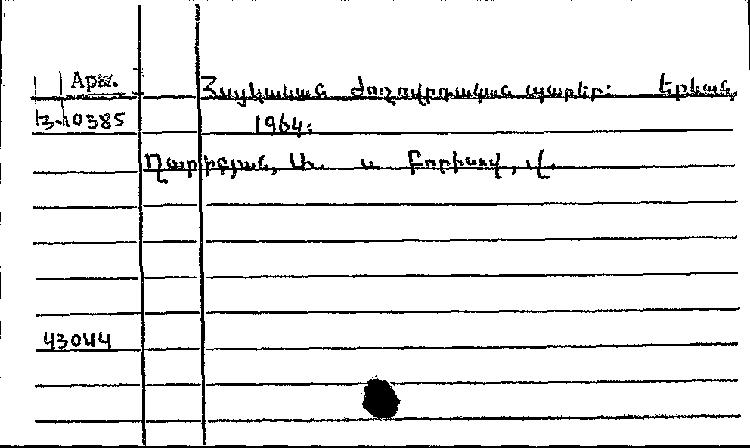 Арм. Հայկական ժողովրդական պարեր: Երևան,
3-10385 1964:
Ղարիբյան, Ա. և Բորիսով, Վ.
43044